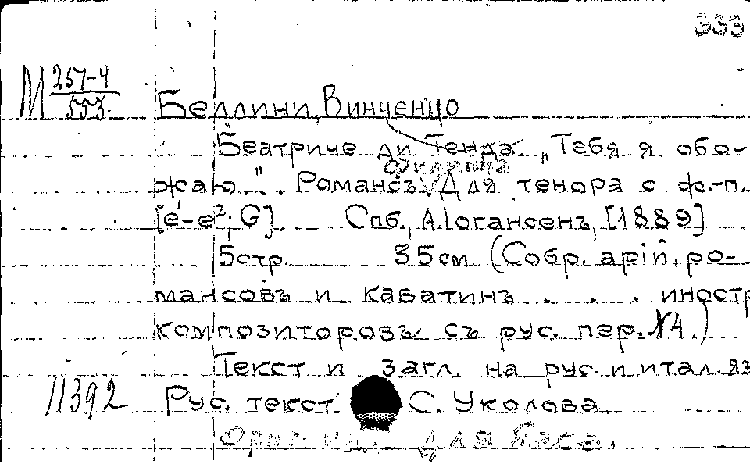 333
М 257-4/553. Беллини, Винченцо
Беатриче ди Тенда. „Тебя я обо-
жаю". Романсъ. Для тенора с ф.-п.
[e-e²; G]. Спб., А. Іогансенъ, [1889]
5 стр. 35 см (Собр. арій, ро-
мансовъ и каватинъ . . . иностр
композиторовъ съ рус. пер. №4.)
Текст и загл. на рус. и итал. яз
11392 Рус. текст С. Уколова
для баса.